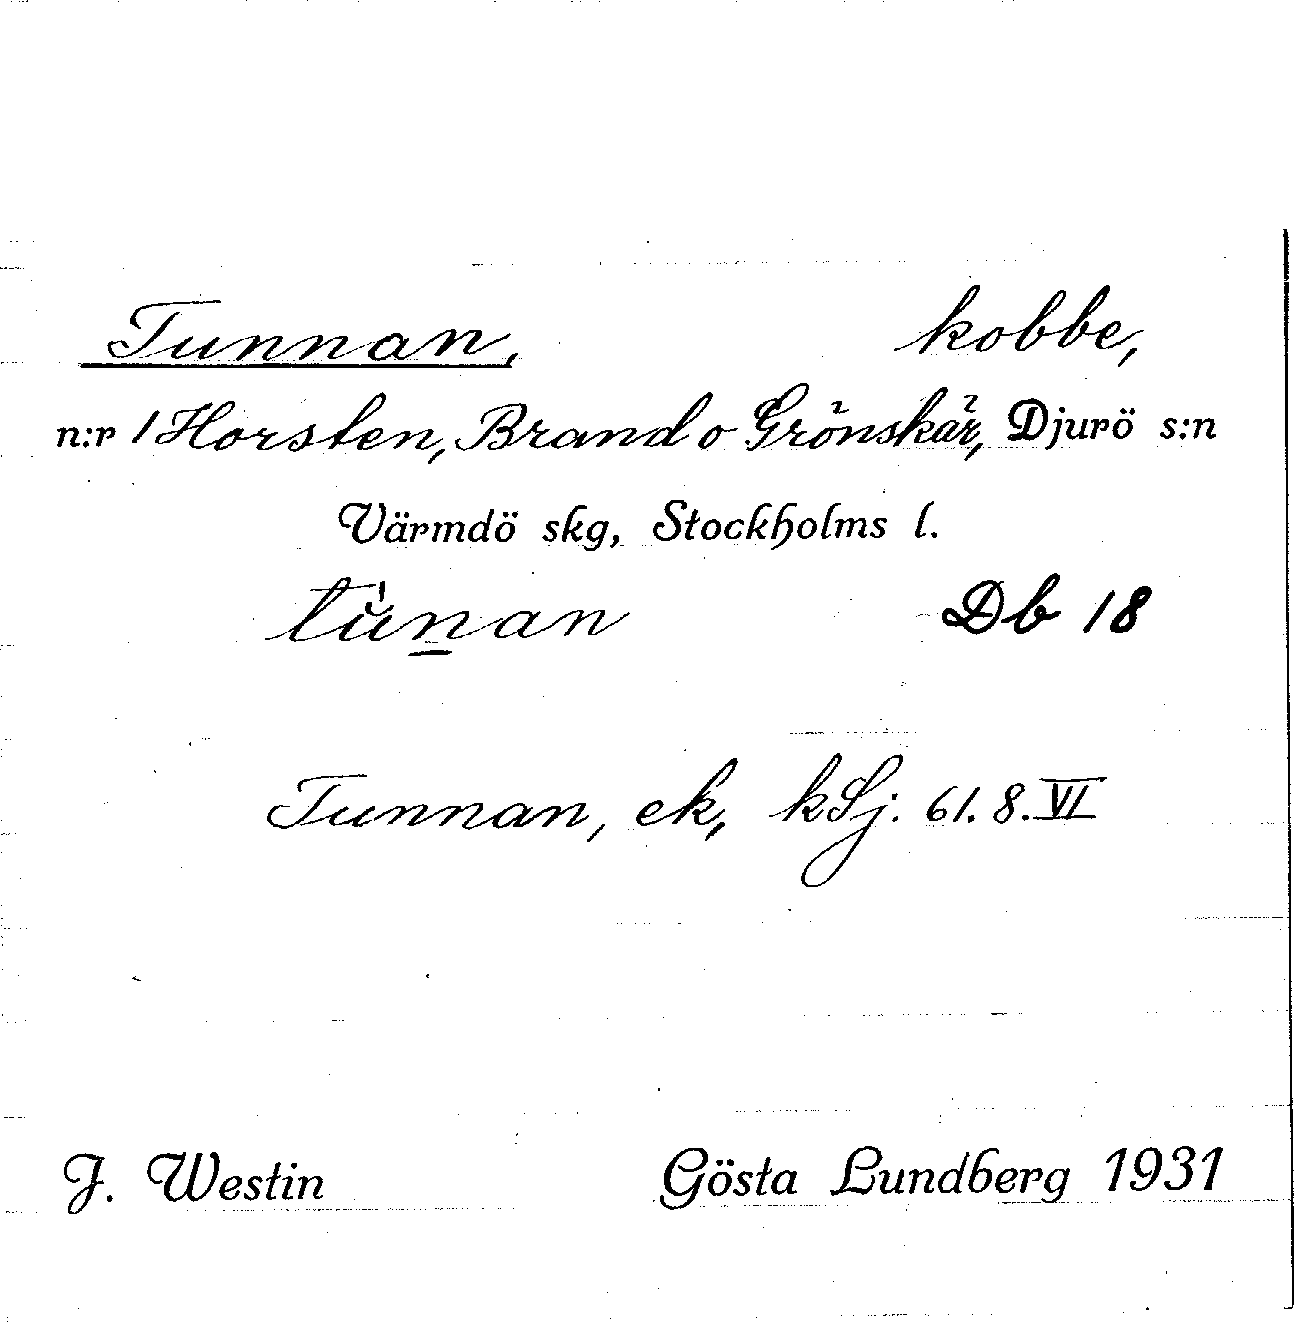 Tunnan, kobbe,
n:r 1 Horsten, Brand o Grönskär, Djurö s:n
Värmdö skg, Stockholms l.
tùn̲an Db 18
Tunnan, ek, kSj. 61. 8. VI
J. Westin Gösta Lundberg 1931